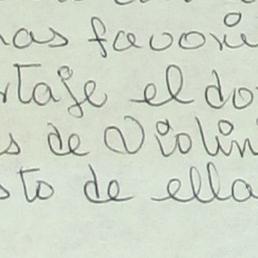 nas favori
rtaje el do
s de Violin
sto de ella